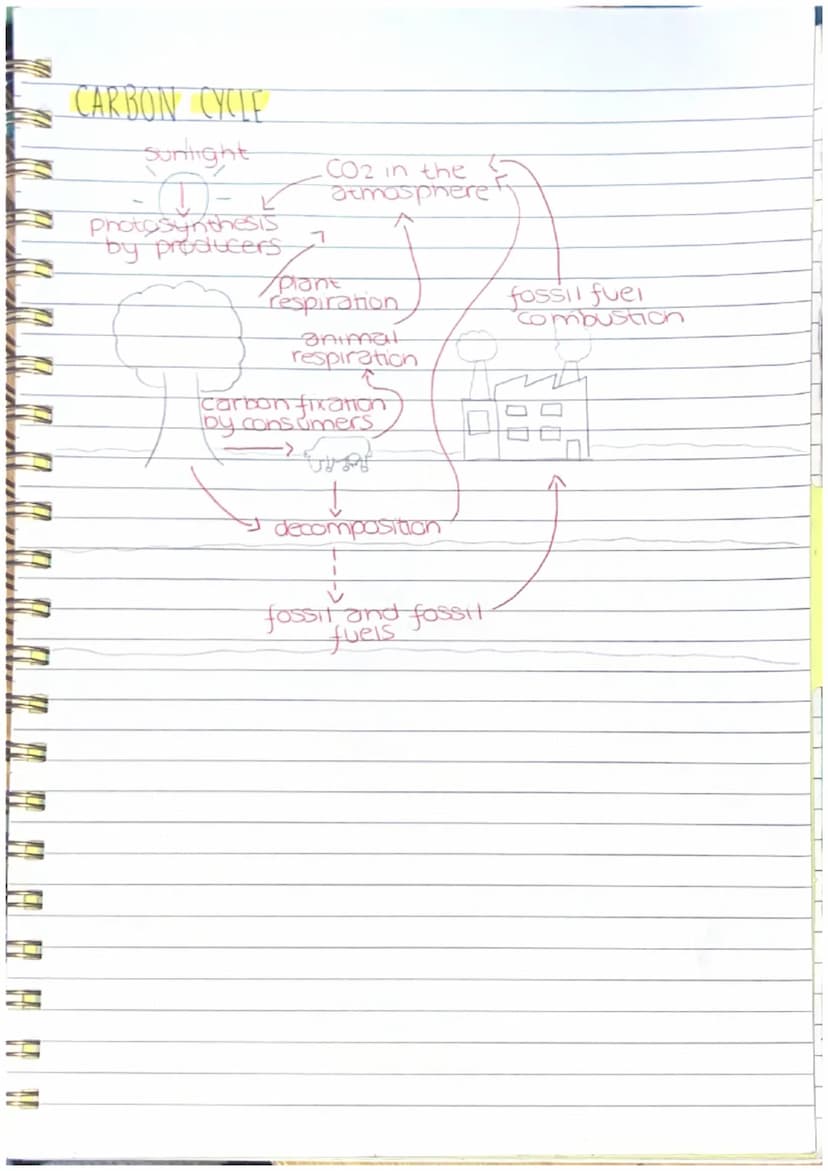 CARBON CYCLE
sunlight
CO2 in the
atmosphere
photosynthesis
by producers
plant
respiration
fossil fuel
combustion
animal
respiration
carbon fixation
by consumers
decomposition
fossil and fossil
fuels